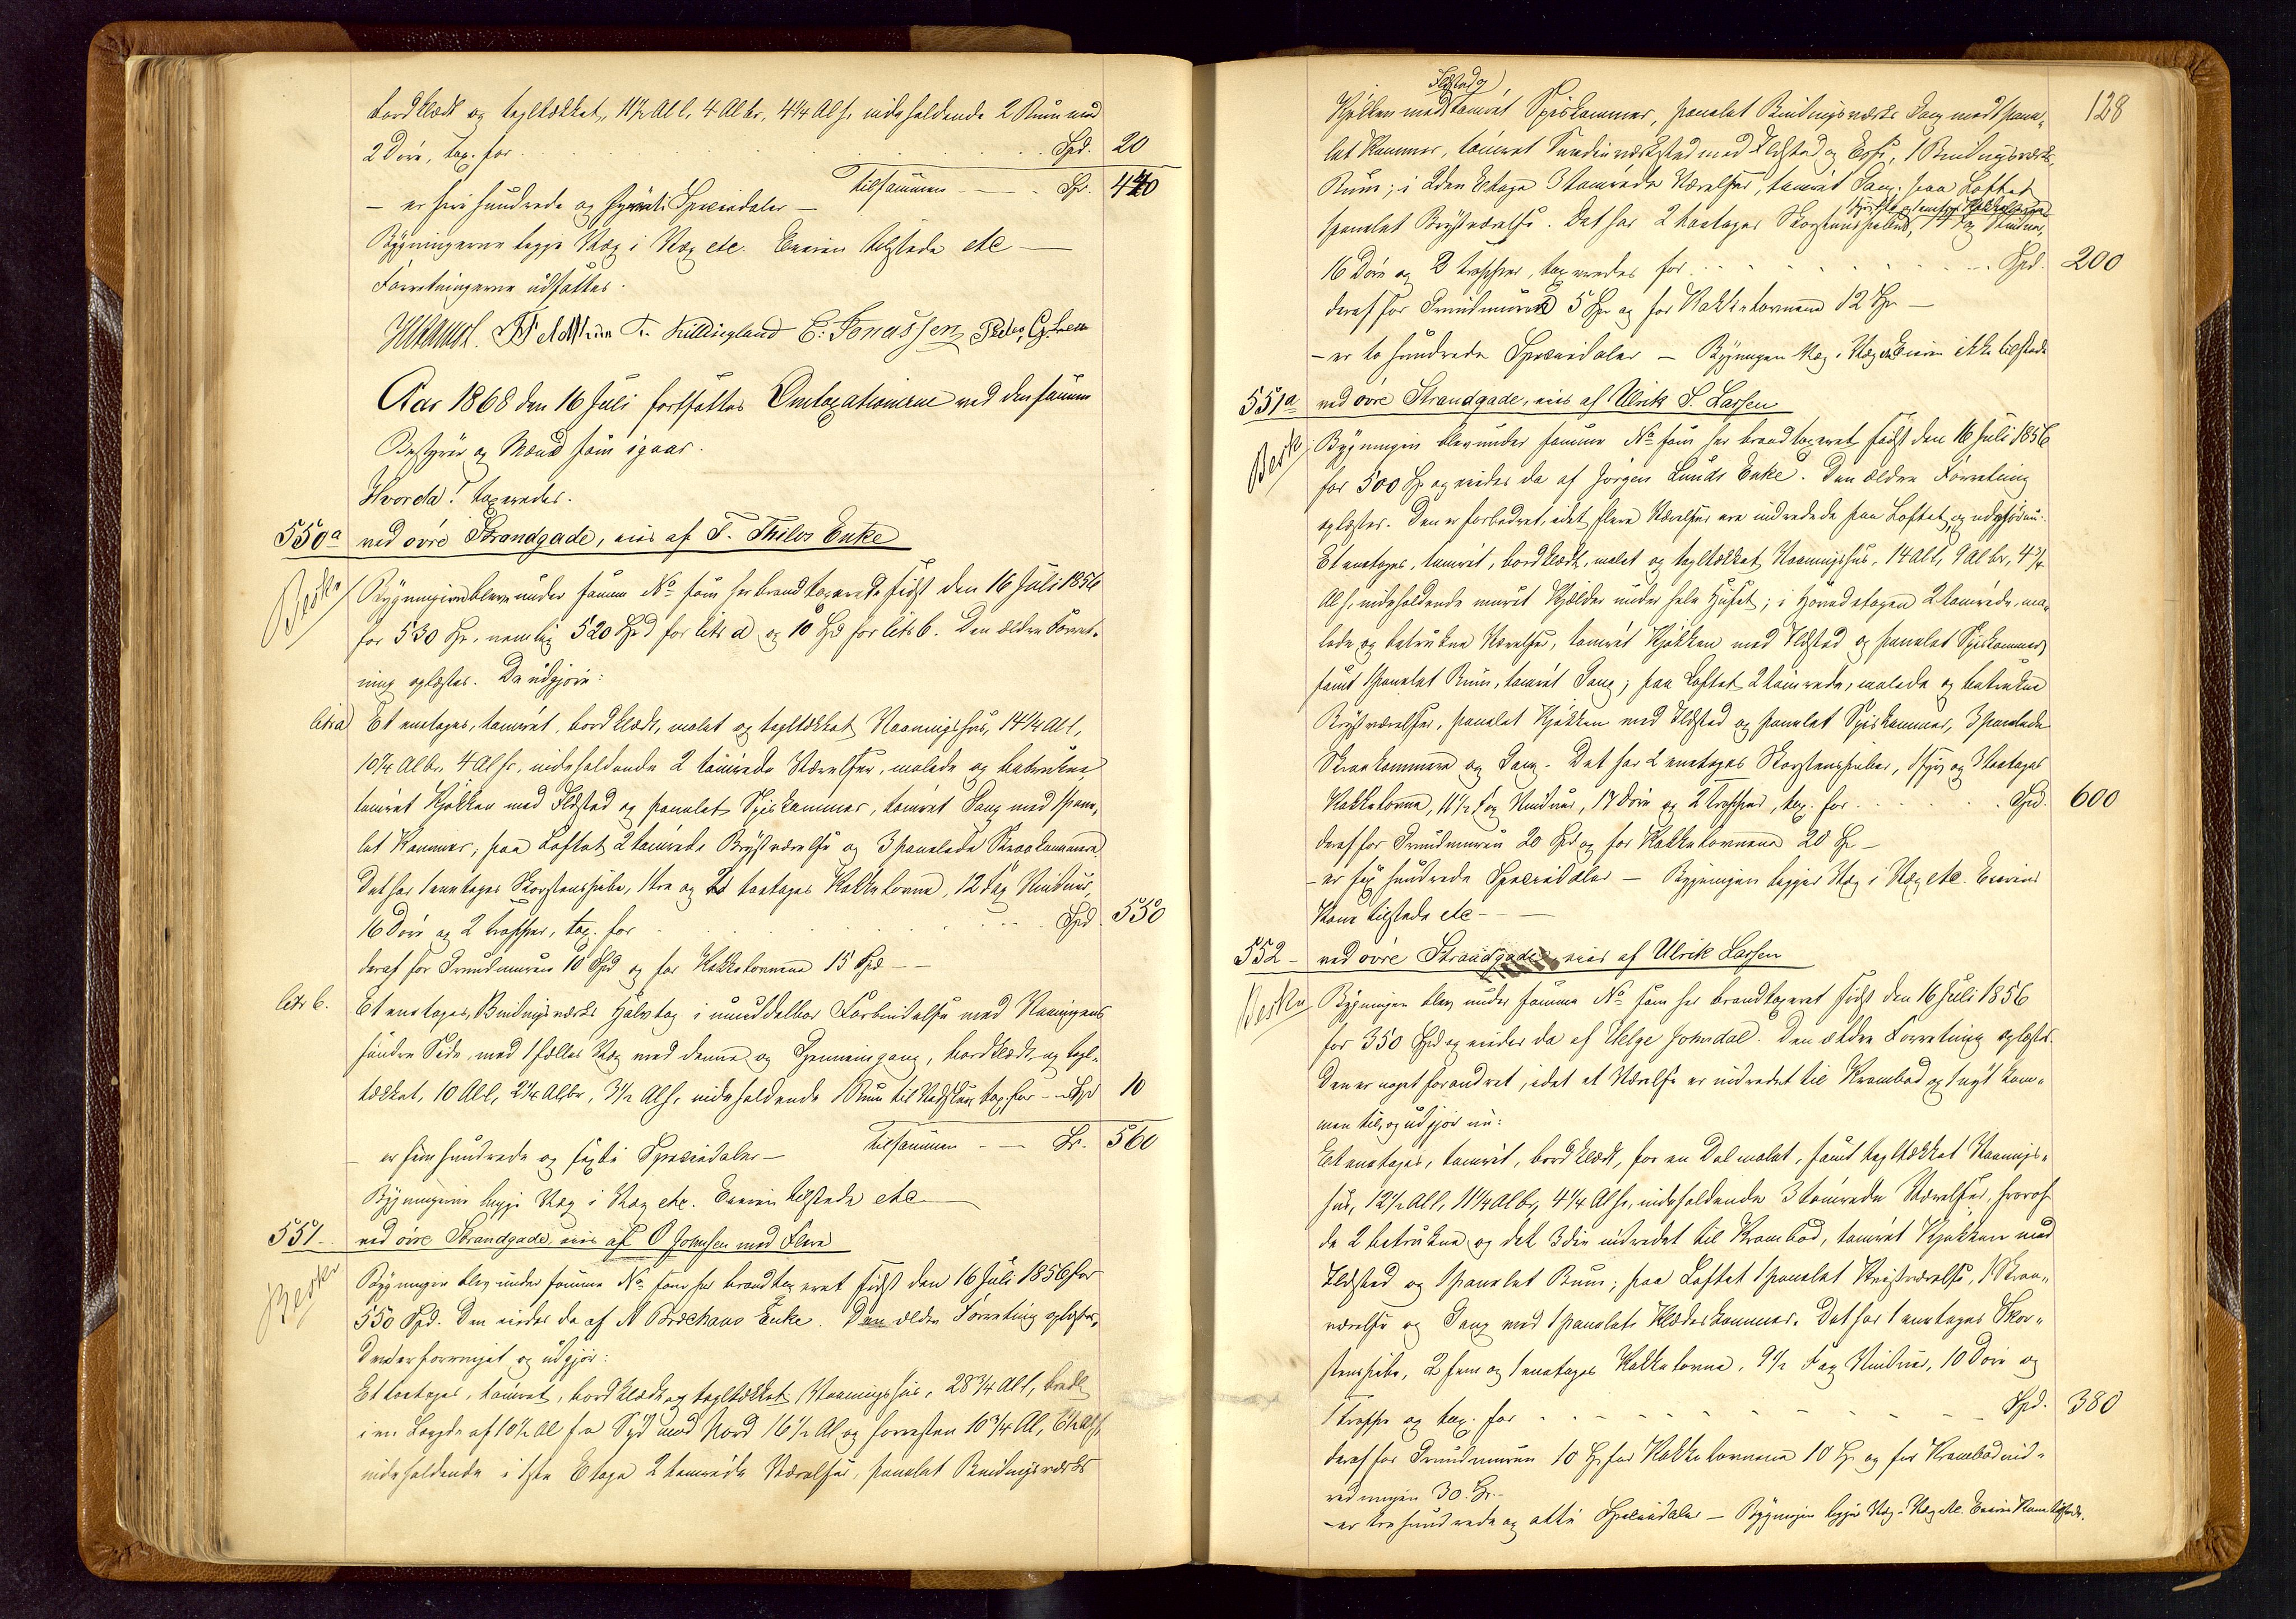 bordklædt og tegltækket, 11½ Al l, 4 Al br, 4¼ Al h, indeholdende 2 Rum med
2 Døre, tax. for . . . Spd. 20
Tilsammen — Sp. 440
— er fire hundrede og fyrreti Speciedaler —
Bygningerne ligge Væg i Væg etc. Eieren tilstede etc —
Forretningerne udsattes.
E. Jonassen
Aar 1868 den 16 Juli fortsattes Omtaxationerne ved den samme
Bestyrer og Mænd som igaar.
Hvorda! taxeredes.
550a ved øvre Strandgade, eies af T. Thilos Enke
Beskr
Bygningerne bleve under samme No som her brandtaxerede sidst den 16 Juli 1856
for 530 Sp. nemlig 520 Spd for litr a og 10 Spd for litr b. Den ældre Forret-
ning oplæstes. De udgjøre:
litr a) Et enetages, tømret, bordklædt, malet og tegltækket Vaaningshus, 14¼ Al l,
10¼ Al br, 4 Al h, indeholdende 2 tømrede Værelser, malede og betrukne
tømret Kjøkken med Ildsted og panelet Spiskammer, tømret Gang med 1 pane-
let Kammer; paa Loftet 2 tømrede Brystværelse og 3 panelede Skraakammere.
Det har 1 enetages Skorstenspibe, 1 tre og 2 toetages Kakkelovne, 12 Fag Vinduer,
16 Døre og 2 Trapper, tax. for . . . Spd 550
deraf for Grundmuren 10 Spd og for Kakkelovnene 15 Spd —
litr b. Et enetages, Bindingsværks Halvtag i umiddelbar Forbindelse med Vaaningens
søndre Side, med 1 fælles Væg med denne og Gjennemgang, bordklædt og tegl-
tækket, 10 Al l, 2¼ Al br, 3½ Al h, indeholdende 1 Rum til Vedskur, tax. for — Spd 10
Tilsammen — Sp. 560
— er fem hundrede og sexti Speciedaler —
Bygningerne ligge Væg i Væg etc. Eieren tilstede etc —
551 — ved øvre Strandgade, eies af O Johnsen med Flere
Beskr
Bygningen blev under samme No som her brandtaxeret sidst den 16 Juli 1856 for
550 Spd. Den eiedes da af Enke. Den ældre Forretning oplæstes.
Den er forrenget og udgjør:
Et toetages, tømret, bordklædt og tegltækket Vaaningshus, 28¾ Al l, bredt
i en Længde af 10½ Al fra Syd mod Nord 16½ Al og forresten 10¾ Al, 6½ Al h,
indeholdende i 1ste Etage 2 tømrede Værelser, panelet Bindingsværks
128
Ildsted og
Kjøkken med tømret Spiskammer, panelet Bindingsværks Gang med 1 pane-
let Kammer, tømret Snedkerværksted med Ildsted og Esse, 1 Bindingsværks
Rum; i 2den Etage 3 tømrede Værelser, tømret Gang; paa Loftet
1 panelet Brystværelse. Det har 2 toetages Skorstenspiber, Fag Vinduer,
16 Døre og 2 Trapper, taxeredes for . . . Spd. 200
deraf for Grundmuren 5 Sp og for Kakkelovnene 12 Sp —
— er to hundrede Speciedaler — Bygningen Væg i Væg etc Eieren ikke tilstede
551a ved øvre Strandgade, eies af Ulrik S. Larsen
Beskr
Bygningen blev under samme No som her brandtaxeret sidst den 16 Juli 1856
for 500 Sp og eiedes da af Jørgen Lunds Enke. Den ældre Forretning
oplæstes. Den er forbedret, idet flere Værelser ere indredede paa Loftet, og udgjør nu:
Et enetages, tømret, bordklædt, malet og tegltækket Vaaningshus, 14 Al l, 9 Al br, 4¾
Al h, indeholdende muret Kjælder under hele Huset; i Hovedetagen 2 tømrede, ma-
lede og betrukne Værelser, tømret Kjøkken med Ildsted og panelet Spiskammer,
samt 1 panelet Rum, tømret Gang; paa Loftet 2 tømrede, malede og betrukne
Brystværelser, panelet Kjøkken med Ildsted og panelet Spiskammer, 3 panelede
Skraakammere og Gang. Det har 2 enetages Skorstenspiber, 1 fyr og 3 toetages
Kakkelovne, 11½ Fag Vinduer, 17 Døre og 2 Trapper, tax. for . . . Spd. 600
deraf for Grundmuren 20 Spd og for Kakkelovnene 20 Sp —
— er sex hundrede Speciedaler — Bygningen ligger Væg i Væg etc. Eierens
Kone tilstede etc —
552 — ved øvre Strandgade eies af Ulrik Larsen
Beskr
Bygningen blev under samme No som her brandtaxeret sidst den 16 Juli 1856
for 350 Spd og eiedes da af Helge Johndal. Den ældre Forretning oplæstes.
Den er noget forandret, idet et Værelse er indredet til Krambod og 1 nyt kom-
men til, og udgjør nu:
Et enetages, tømret, bordklædt, for en Del malet, samt tegltækket Vaanings-
hus, 12½ Al l, 11¼ Al br, 4¼ Al h, indeholdende 3 tømrede Værelser, hvoraf
de 2 betrukne og det 3die indredet til Krambod, tømret Kjøkken med
Ildsted og 1 panelet Rum; paa Loftet 1 panelet Kvistværelse, 1 Skraa-
værelse og Gang med 1 panelet Klædeskammer. Det har 1 enetages Skor-
stenspibe, 2 fem og 1 enetages Kakkelovne, 9½ Fag Vinduer, 10 Døre og
1 Trappe og tax. for . . . Spd. 380
deraf for Grundmuren 10 Sp, for Kakkelovnene 10 Sp og for Krambodind-
redningen 30 Sp. —
— er tre hundrede og otti Speciedaler — Bygningen ligger Væg i Væg etc. Eierens Kone tilstede.